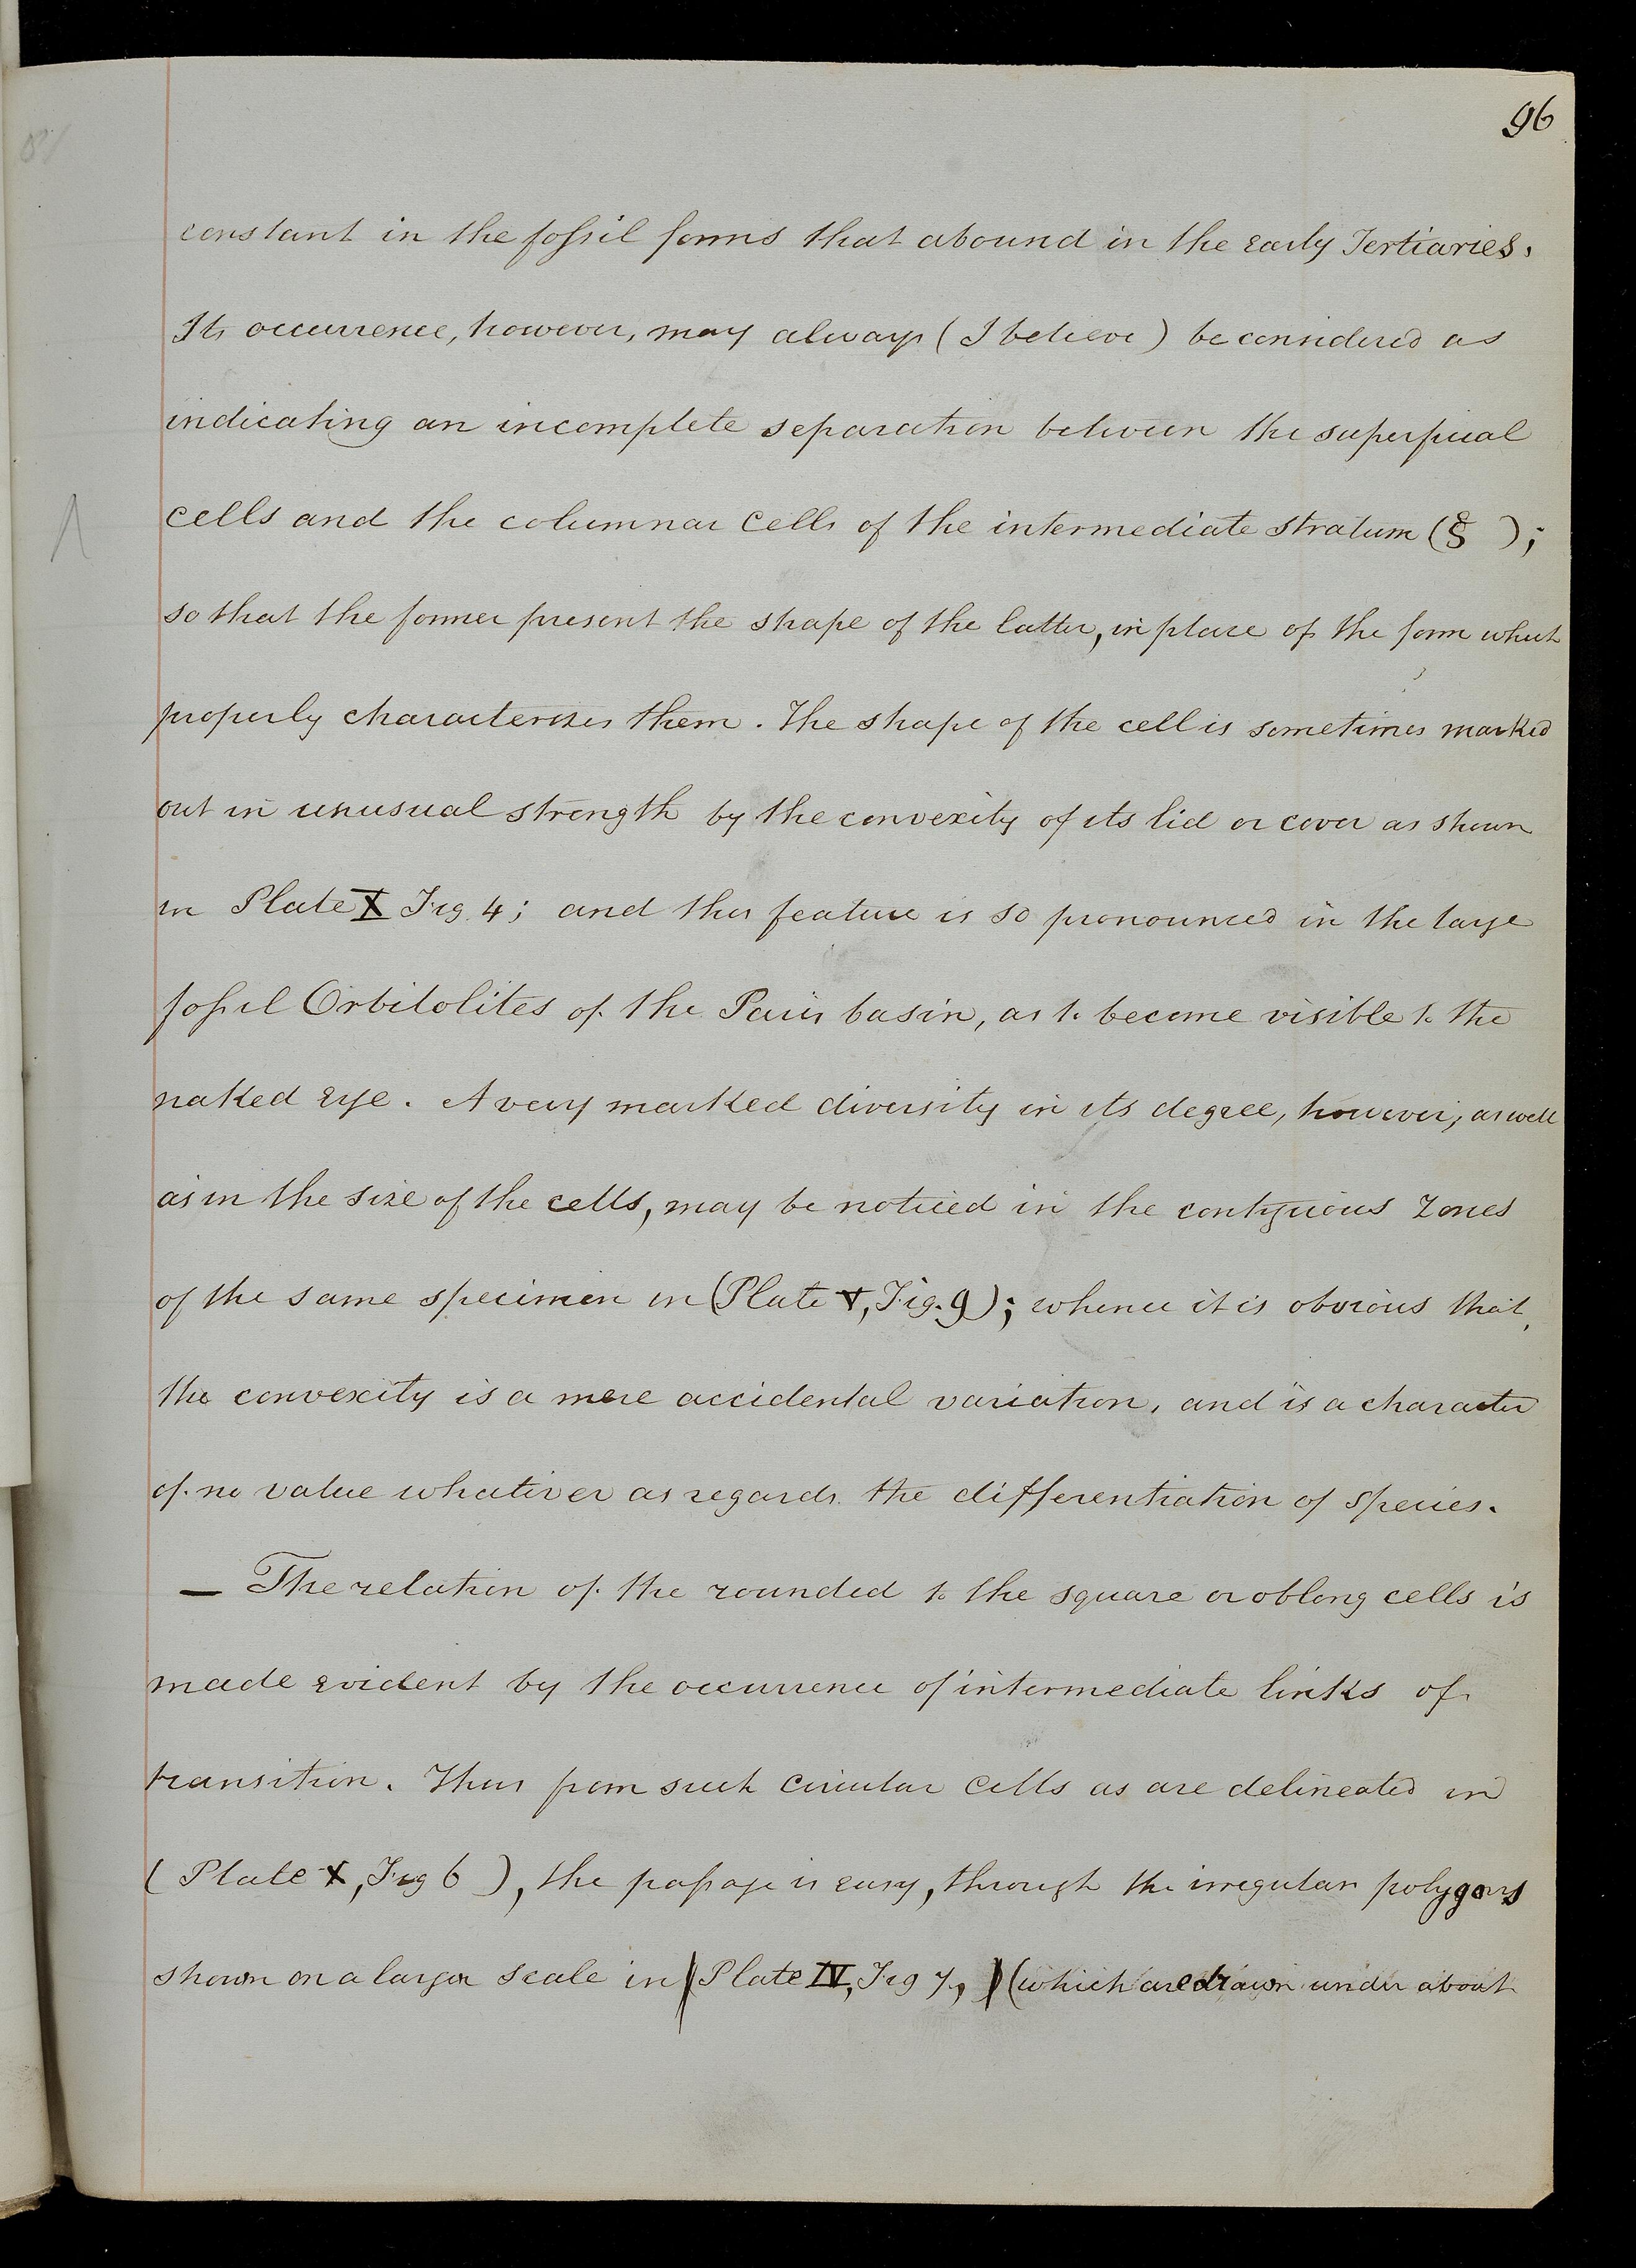 96
constant in the fossil forms that abound in the early Tertiaries.
Its occurrence, however, may always (I believe) be considered as
indicating an incomplete separation between the superficial
cells and the columnar cells of the intermediate stratum (§ );
so that the former present the shape of the latter, in place of the form which
properly characterizes them. The shape of the cell is sometimes marked
out in unusual strength by the convexity of its lid or cover as shown
in Plate X Fig. 4; and this feature is so pronounced in the large
fossil Orbitolites of the Paris basin, as to become visible to the
naked eye. A very marked diversity in its degree, however, as well
as in the size of the cells, may be noticed in the contiguous zones
of the same specimen in (Plate V, Fig. 9); whence it is obvious that,
the convexity is a mere accidental variation, and is a character
of no value whatever as regards the differentiation of species.
— The relation of the rounded to the square or oblong cells is
made evident by the occurrence of intermediate links of
transition. Thus from such circular cells as are delineated in
(Plate X, Fig 6), the passage is easy, through the irregular polygons
shown on a larger scale in (Plate IV, Fig 7,) (which are drawn under about